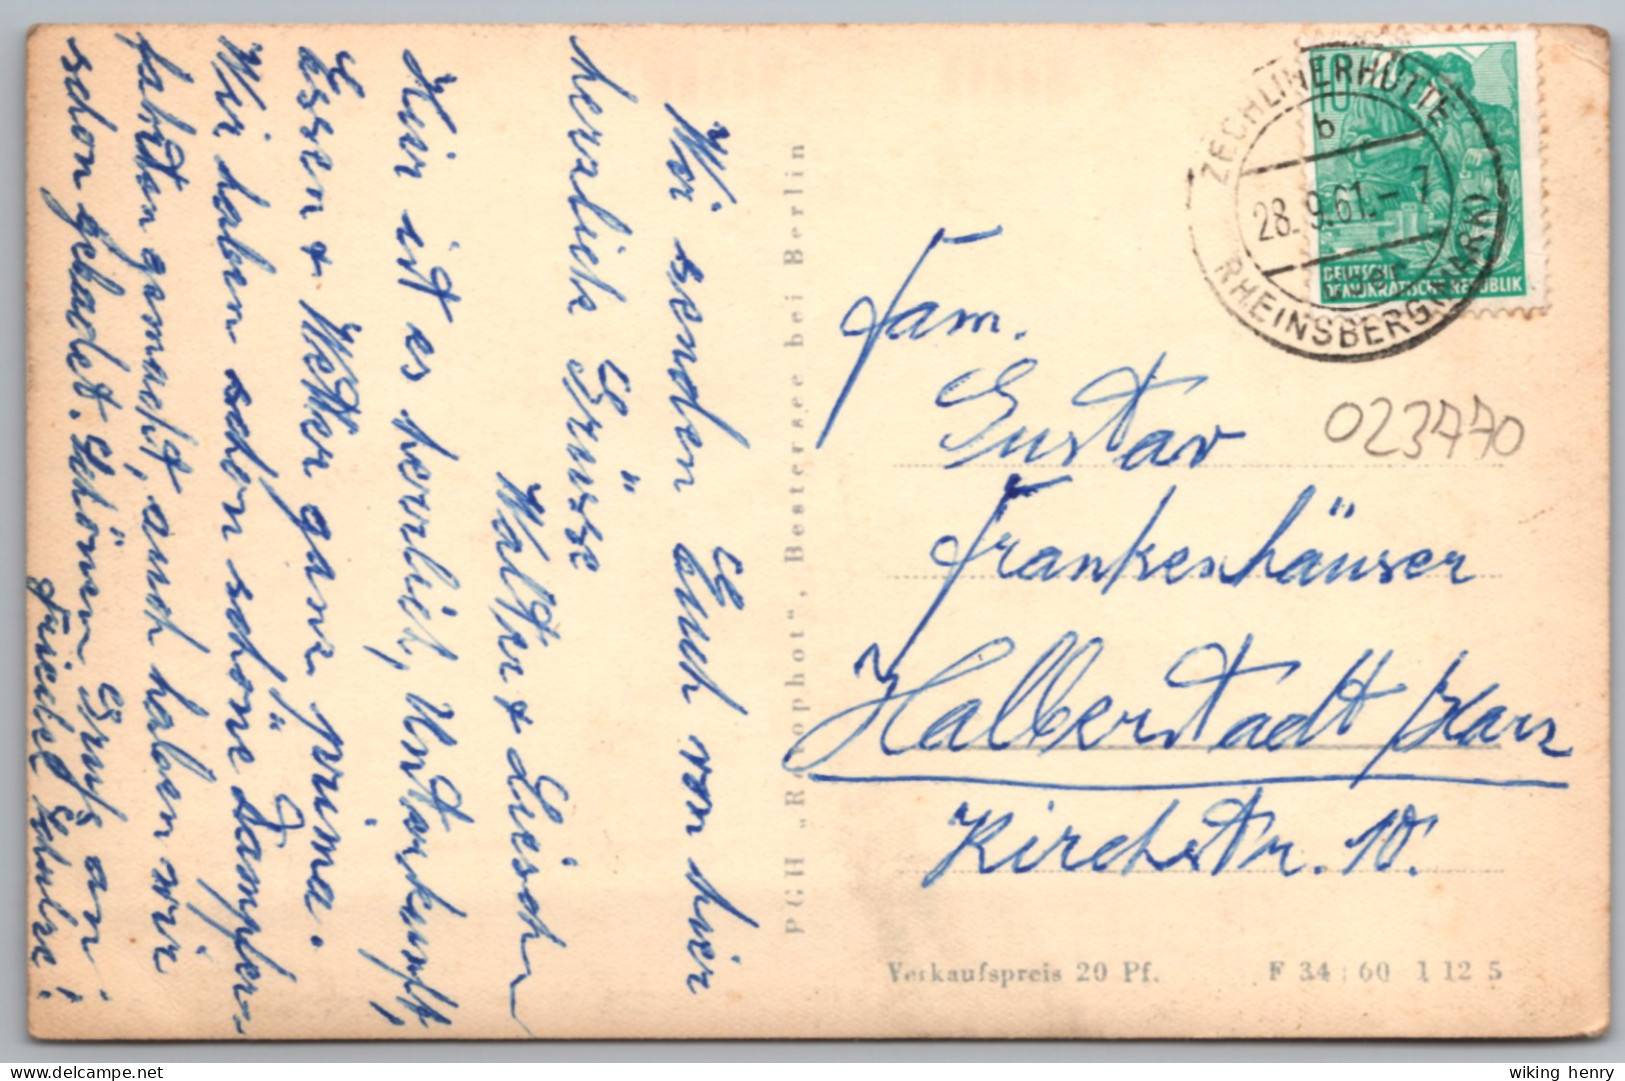 Wir senden Euch von hier
herzlich Grüsse
Walter + Lieschen
Hier ist es herrlich, Unterkunft,
Essen + Wetter ganz prima.
Wir haben schon schöne Dampfer-
fahrten gemacht, auch haben wir
schon gebadet. Schönen Gruß an
Friedel Schulze!
PGH „Rotophot“, Bestensee bei Berlin
ZECHLINERHÜTTE
b
28.9.61.-7
RHEINSBERG (MARK)
10
DEUTSCHE
DEMOKRATISCHE REPUBLIK
023770
Fam.
Gustav
Frankenhäuser
Halberstadt/Harz
Kirchstr. 10.
Verkaufspreis 20 Pf. F 34 : 60 1 12 5
wiking henry